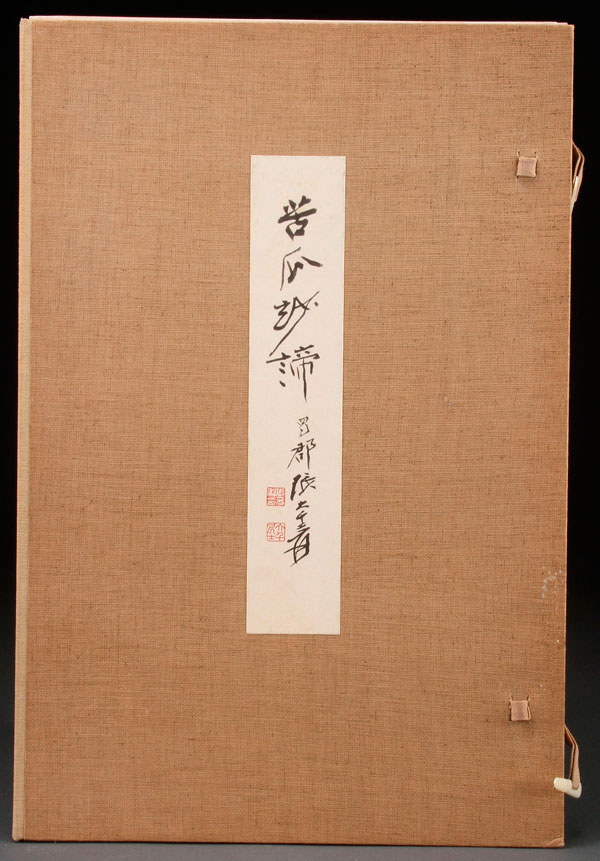 苦瓜玅諦 蜀郡張大千爰